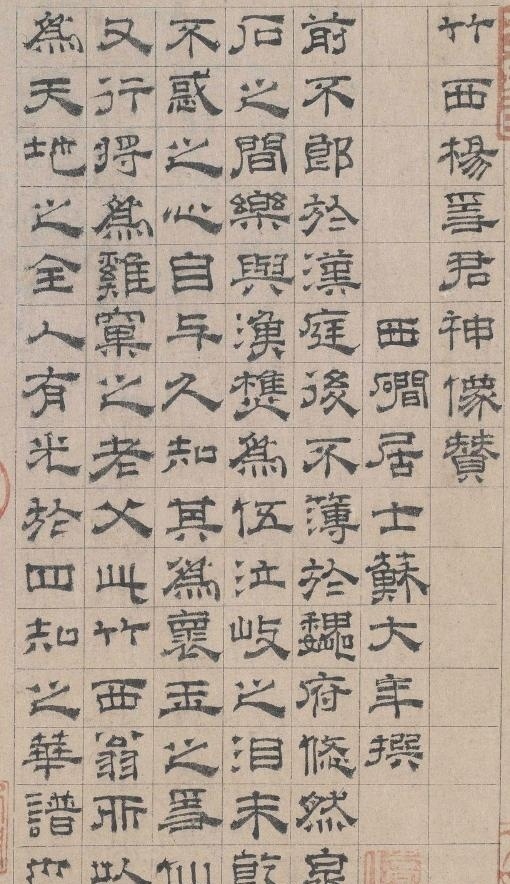 竹西楊君神像贊
西磵居士蘇大年撰
前不郎於漢庭後不簿於魏府倐然泉
石之間樂與漁樵爲伍泣岐之泪未乾
不惑之心自与久知其爲褱玉之仙
又行將爲雞窠之老父此竹西翁所以
爲天地之全人有光於四知之華譜也